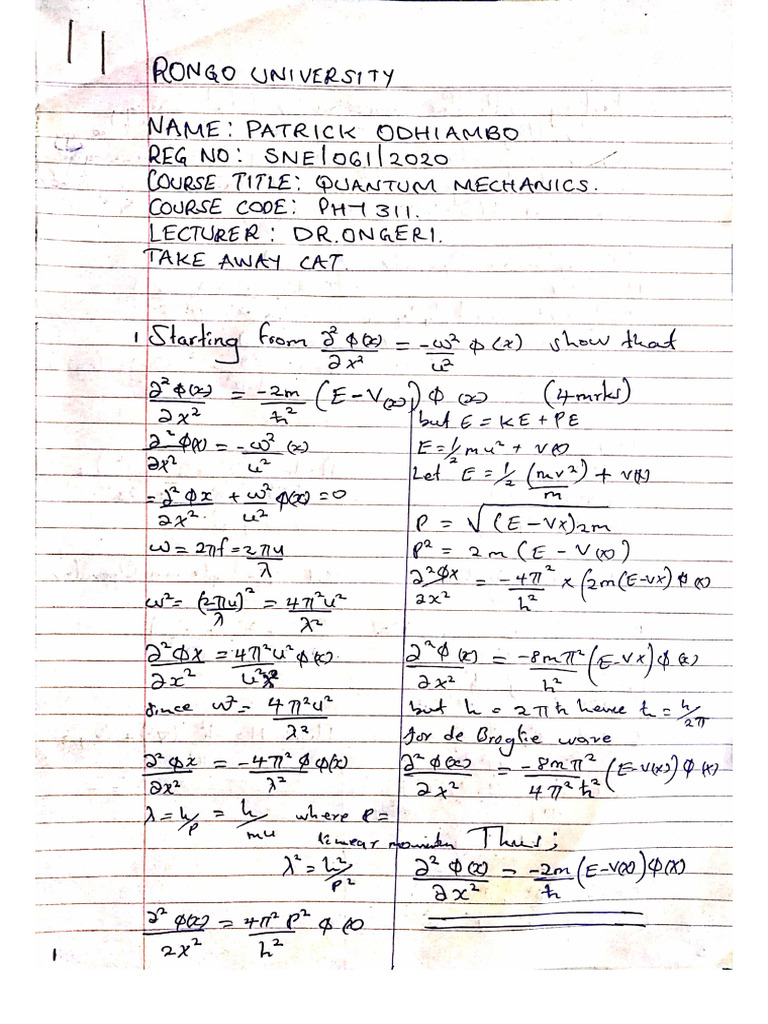 11
RONGO UNIVERSITY
NAME: PATRICK ODHIAMBO
REG NO: SNE/061/2020
COURSE TITLE: QUANTUM MECHANICS.
COURSE CODE: PHY 311.
LECTURER: DR. ONGERI.
TAKE AWAY CAT.
1 Starting from ∂²ϕ(x)/∂x² = -ω²/u² ϕ(x) show that
∂²ϕ(x)/∂x² = -2m/ħ² (E-V(x)) ϕ(x) (4mrks)
∂²ϕ(x)/∂x² = -ω²/u² (x)
= ∂²ϕx/∂x² + ω²/u² ϕ(x) = 0
ω = 2πf = 2πu/λ
ω² = (2πu/λ)² = 4π²u²/λ²
∂²ϕx/∂x² = 4π²u²/u²λ² ϕ(x)
since ω² = 4π²u²/λ²
∂²ϕx/∂x² = -4π²/λ² ϕ ϕ(x)
λ = h/p = h/mu where P =
linear
λ² = h²/p²
∂²ϕ(x)/2x² = 4π²P²/h² ϕ(x)
1
but E = KE + PE
E = 1/2 mu² + V(x)
Let E = 1/2 (mv²)/m + V(x)
P = √(E-Vx)2m
P² = 2m(E-V(x))
∂²ϕx/∂x² = -4π²/h² × (2m(E-Vx) ϕ(x)
∂²ϕ(x)/∂x² = -8mπ²/h² (E-Vx) ϕ(x)
but h = 2πħ hence ħ = h/2π
for de Broglie wave
∂²ϕ(x)/∂x² = -8mπ²/4π²ħ² (E-V(x)) ϕ(x)
Thus;
∂²ϕ(x)/∂x² = -2m/ħ (E-V(x)) ϕ(x)